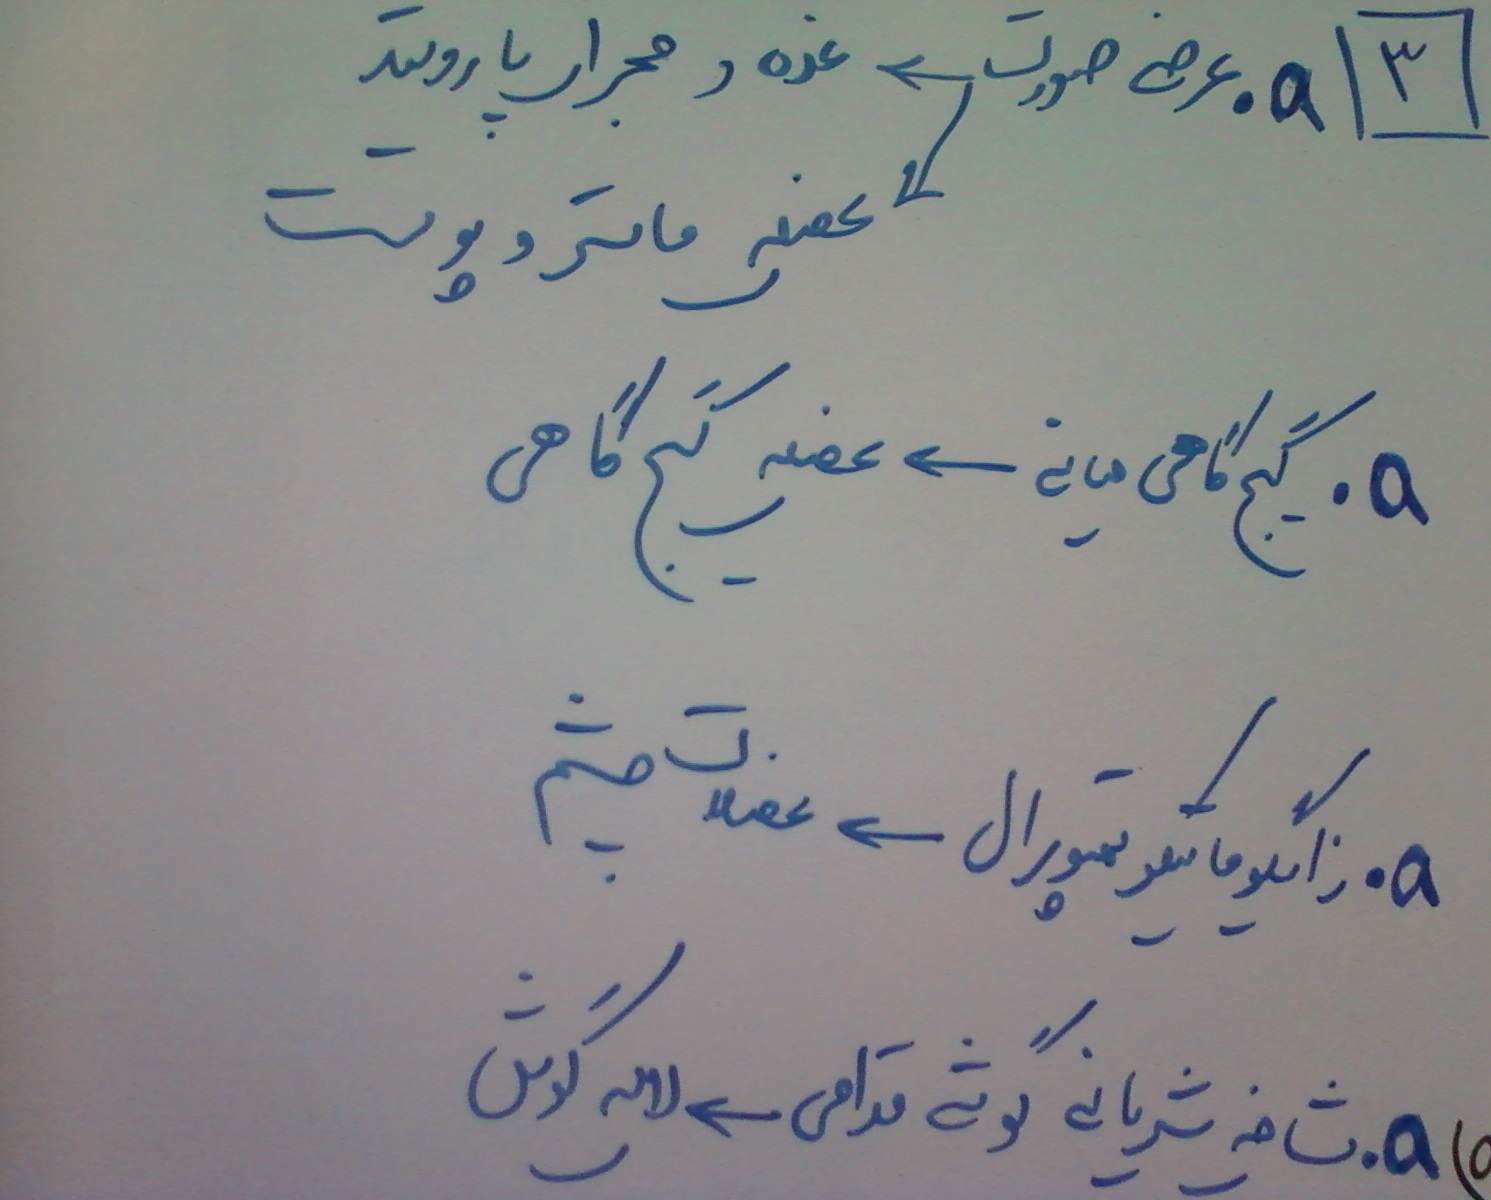 ۳ a. عرضی صورت ← غده و مجرای پاروتید
عضله ی ماستر و پوست
a. گیج گاهی میانی ← عضله ی گیج گاهی
a. زایگوماتیکوتمپورال ← عضلات چشم
a. شاخه شریانی گوشی قدامی ← لاله ی گوش